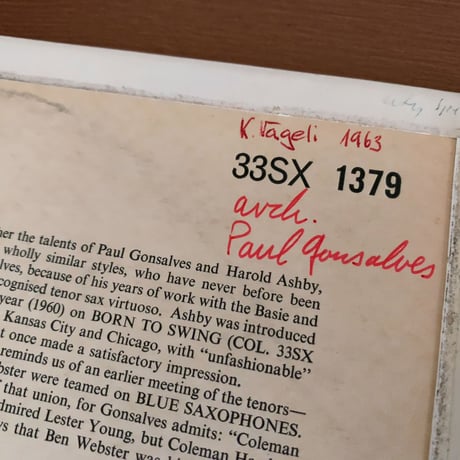 K. Vägeli 1963
33SX 1379
arch.
Paul Gonsalves
her the talents of Paul Gonsalves and Harold Ashby,
wholly similar styles, who have never before been
lves, because of his years of work with the Basie and
cognised tenor sax virtuoso. Ashby was introduced
year (1960) on BORN TO SWING (COL. 33SX
Kansas City and Chicago, with "unfashionable"
t once made a satisfactory impression.
reminds us of an earlier meeting of the tenors—
bster were teamed on BLUE SAXOPHONES.
f that union, for Gonsalves admits: "Coleman
dmired Lester Young, but Coleman
ys that Ben Webster was